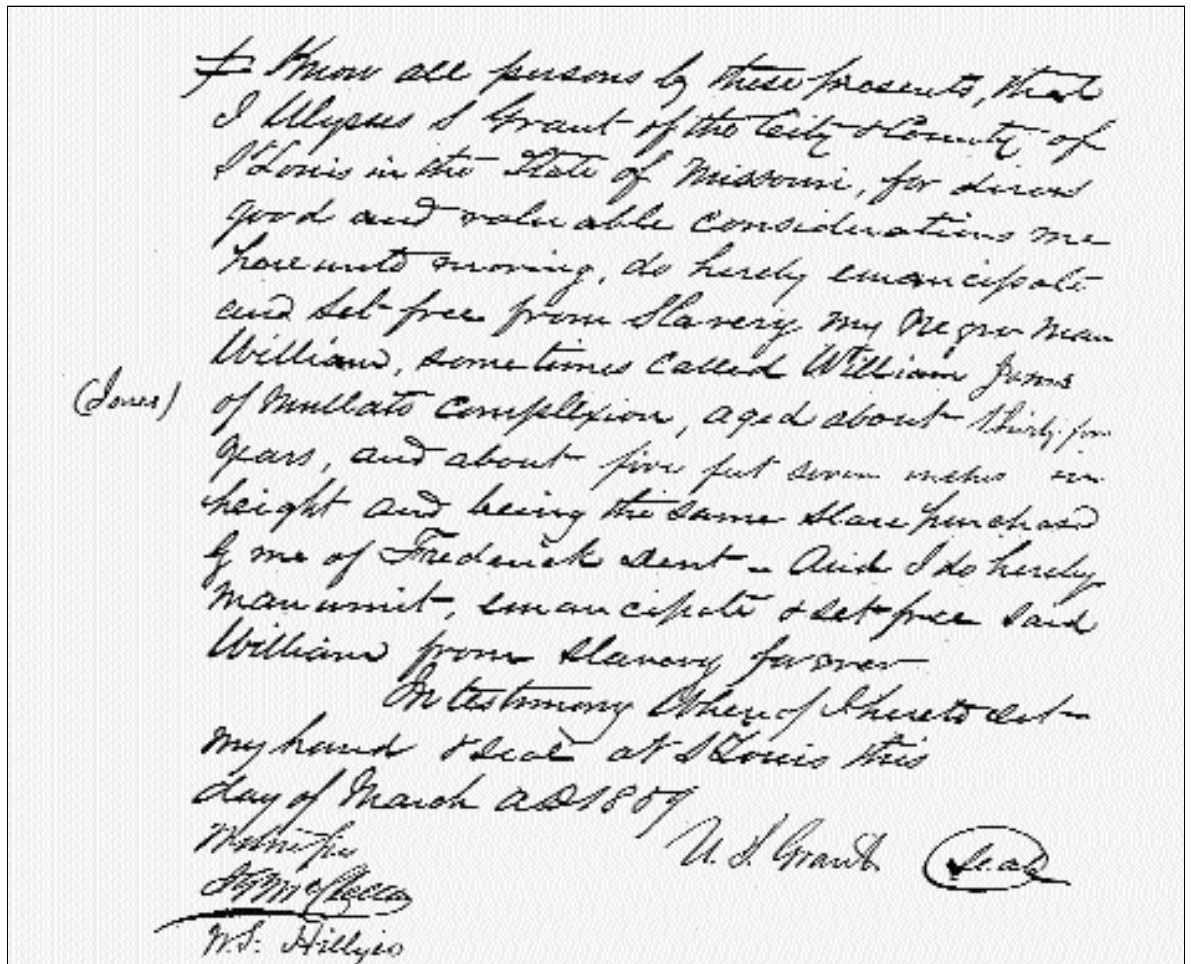 Know all persons by these presents, that
I Ulysses S Grant of the City & County of
St Louis in the State of Missouri, for divers
good and valuable considerations me
hereunto moving, do hereby emancipate
and set free from Slavery my Negro man
William, sometimes called William Jones
(Jones)
of Mullato complexion, aged about thirty-five
years, and about five feet seven inches in
height and being the same slave purchased
by me of Frederick Dent - And I do hereby
manumit, emancipate & set free said
William from slavery forever
In testimony Whereof I hereto set
my hand & seal at St Louis this
day of March AD 1859
Witnesses
U. S. Grant Seal
J G McClellan
W. S. Hillyer